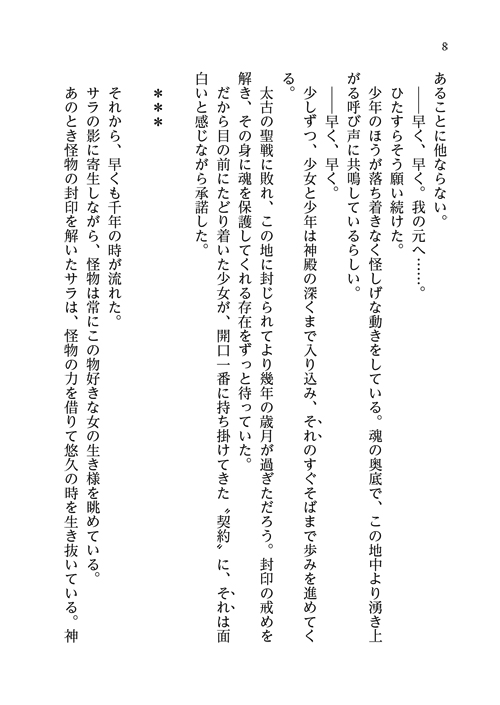 8
あることに他ならない。
――早く、早く。我の元へ……。
ひたすらそう願い続けた。
少年のほうが落ち着きなく怪しげな動きをしている。魂の奥底で、この地中より湧き上
がる呼び声に共鳴しているらしい。
――早く、早く。
少しずつ、少女と少年は神殿の深くまで入り込み、それのすぐそばまで歩みを進めてく
る。
太古の聖戦に敗れ、この地に封じられてより幾年の歳月が過ぎただろう。封印の戒めを
解き、その身に魂を保護してくれる存在をずっと待っていた。
だから目の前にたどり着いた少女が、開口一番に持ち掛けてきた〝契約〟に、それは面
白いと感じながら承諾した。
＊＊＊
それから、早くも千年の時が流れた。
サラの影に寄生しながら、怪物は常にこの物好きな女の生き様を眺めている。
あのとき怪物の封印を解いたサラは、怪物の力を借りて悠久の時を生き抜いている。神